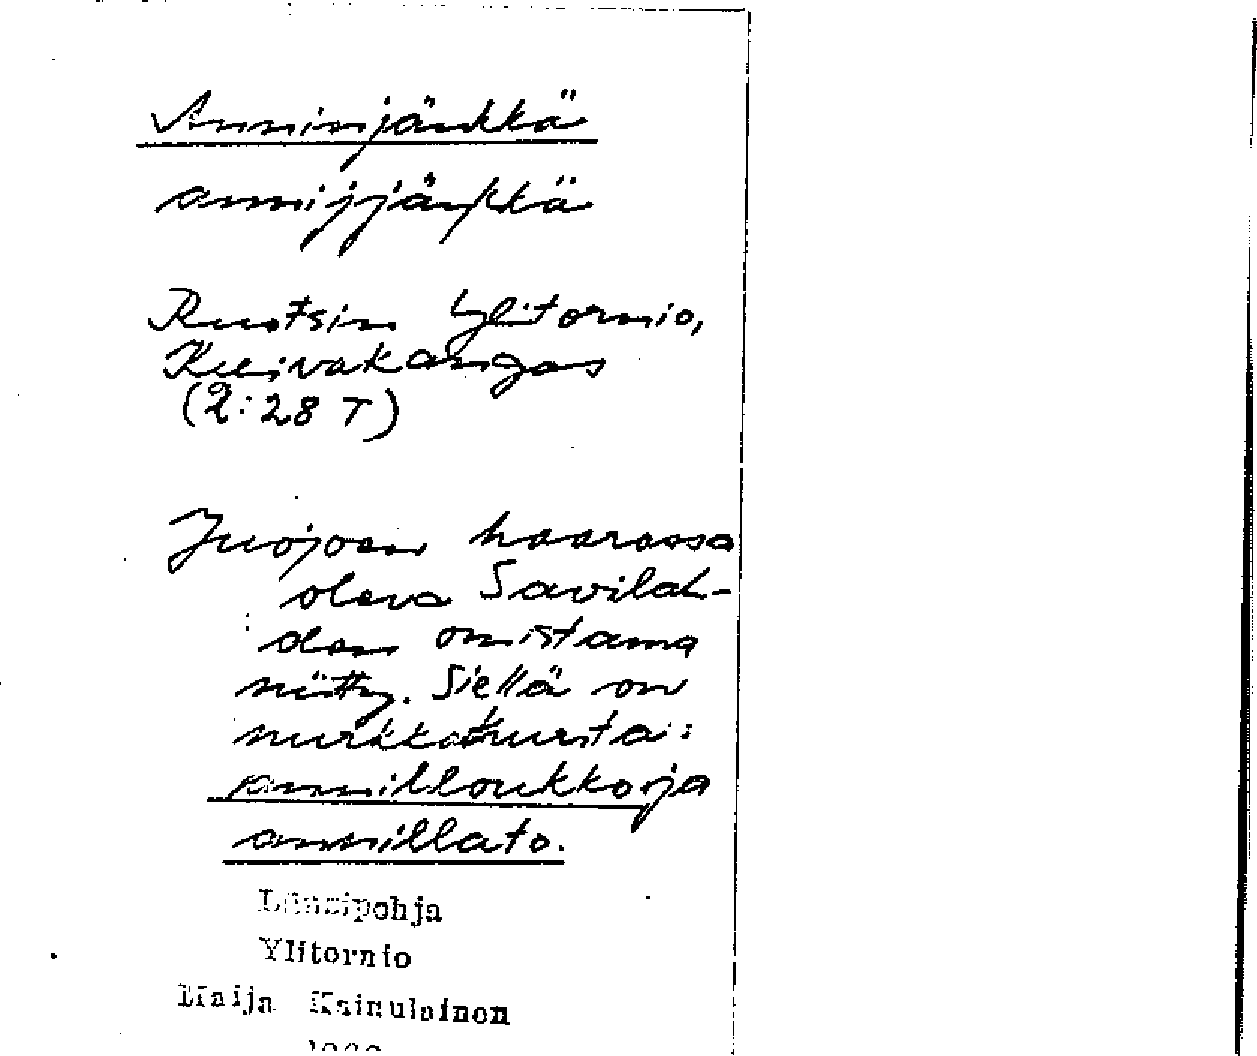 Anninjänkkä
annijjäŋkkä
Ruotsin Ylitornio,
Kuivakangas
(2:28 T)
Juojoen haarassa
oleva Savilah-
den omistama
niitty. Siellä on
annilloukko ja
annillato.
Länsipohja
Ylitornio
Maija Kainulainen